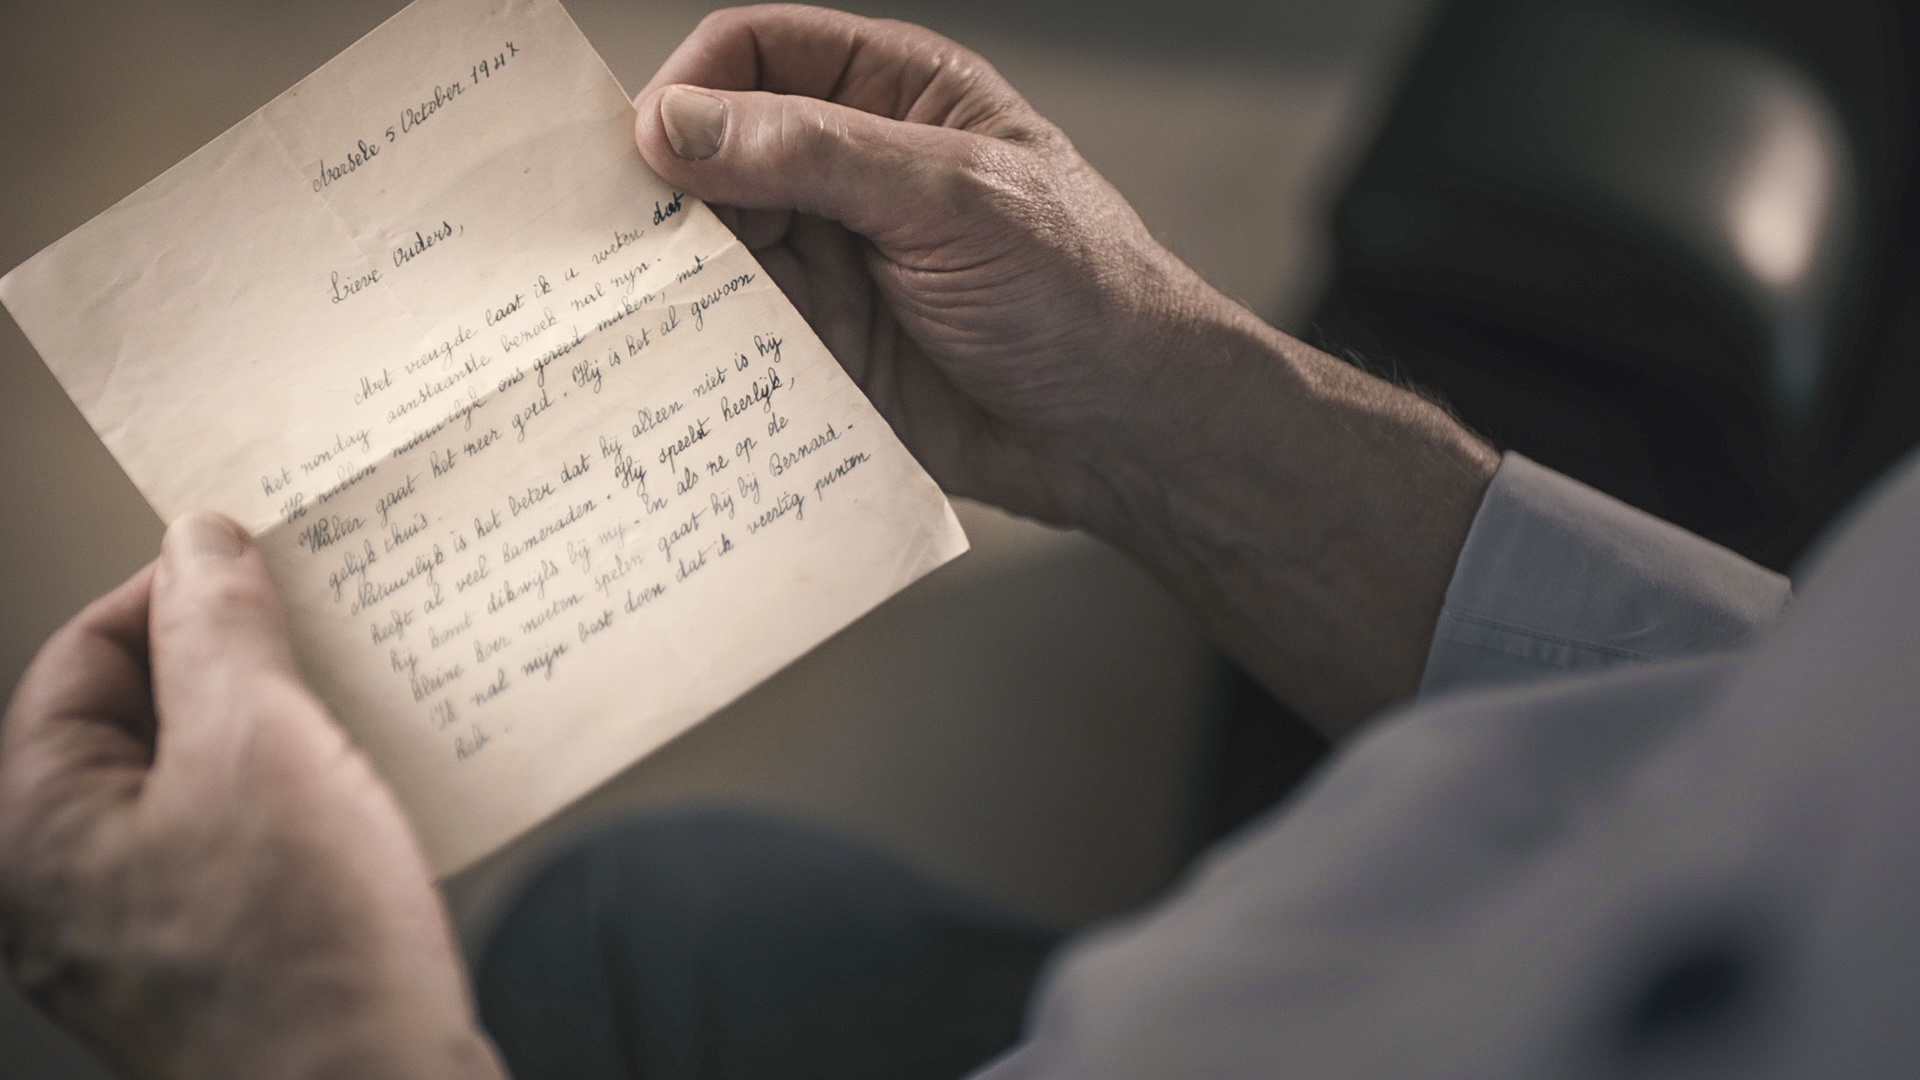 Aarsele 5 October 1947
Lieve Ouders,
Met vreugde laat ik u weten dat
het zondag aanstaande bezoek zal zijn.
We zullen natuurlijk ons gereed maken, met
Walter gaat het zeer goed. Hij is het al gewoon
gelijk thuis.
Natuurlijk is het beter dat hij alleen niet is hij
heeft al veel kameraden. Hij speelt heerlijk,
hij komt dikwijls bij mij. En als ze op de
kleine koer moeten spelen gaat hij bij Bernard.
Ik zal mijn best doen dat ik veertig punten
heb.